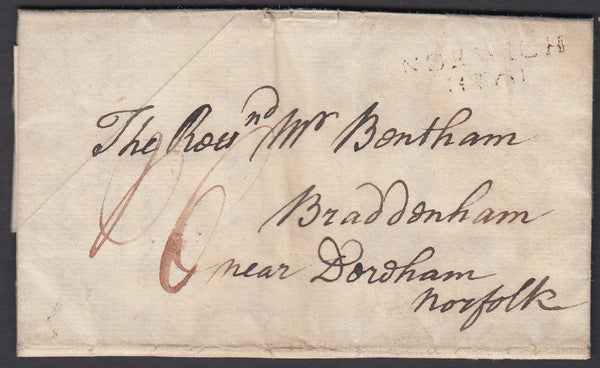 NORWICH
The Revnd Mr Bentham
Braddenham
6 near Dereham
Norfolk